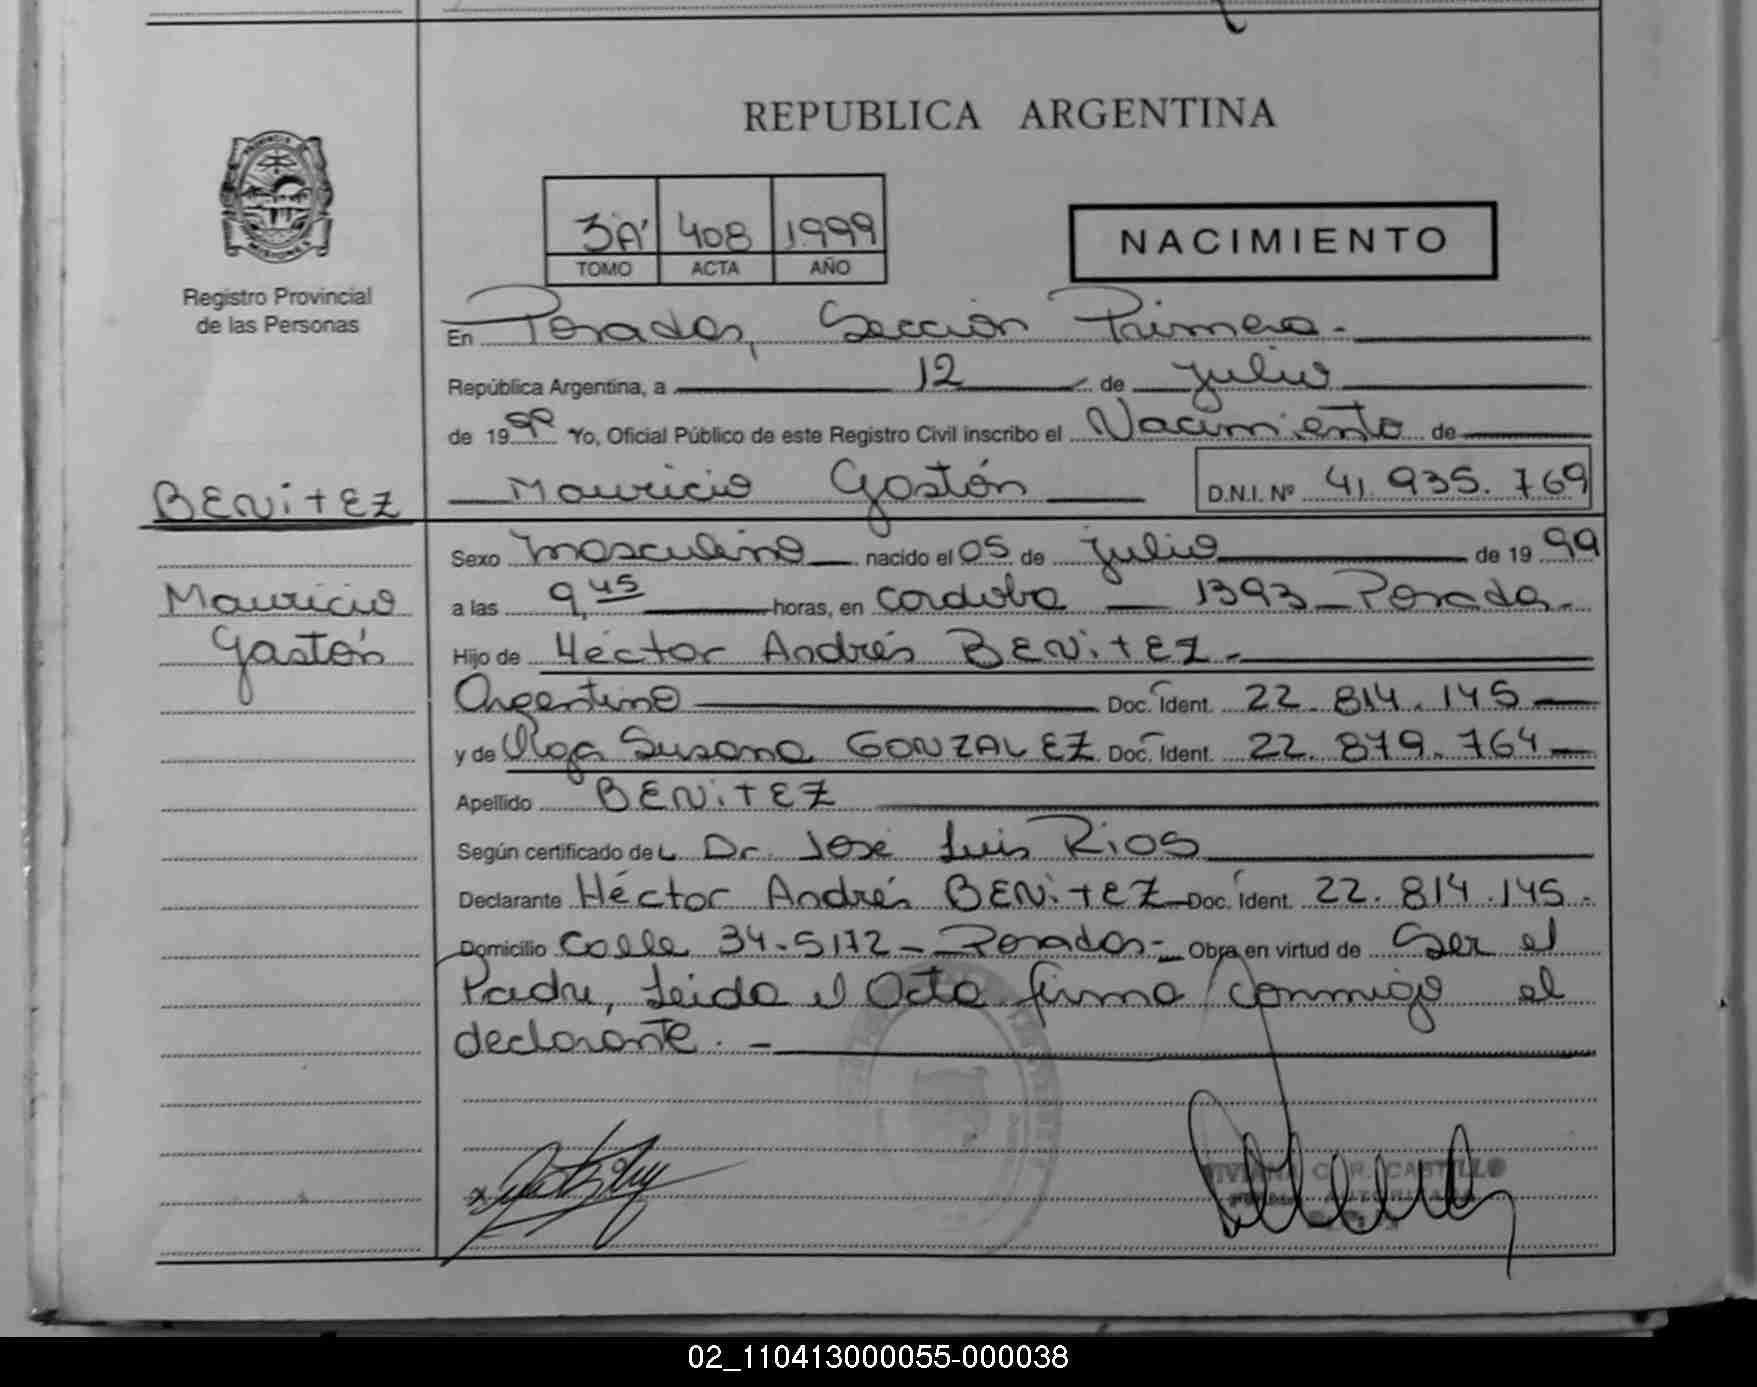 REPUBLICA ARGENTINA
PROVINCIA
MISIONES
Registro Provincial
de las Personas
3"A" 408 1999
TOMO ACTA AÑO
NACIMIENTO
En Posadas, Sección Primera.-
República Argentina, a 12 de julio
de 1999 Yo, Oficial Público de este Registro Civil inscribo el Nacimiento de
BENiTEZ
Mauricio Gastón D.N.I. Nº 41.935.769
Mauricio
Gastón
Sexo Masculino nacido el 05 de julio de 1999
a las 9,45 horas, en Cordoba 1393 Posadas.
Hijo de Héctor Andrés BENiTEZ.-
Argentino Doc. Ident. 22.814.145
y de Olga Susana GONZALEZ Doc. Ident. 22.879.764
Apellido BENiTEZ
Según certificado deL Dr. José Luis Rios
Declarante Héctor Andrés BENiTEZ Doc. Ident. 22.814.145.
Domicilio Calle 34-5172-Posados- Obra en virtud de Ser el
Padre, Leida el Acta firma conmigo el
declarante.-
CASTILLO
02_110413000055-000038